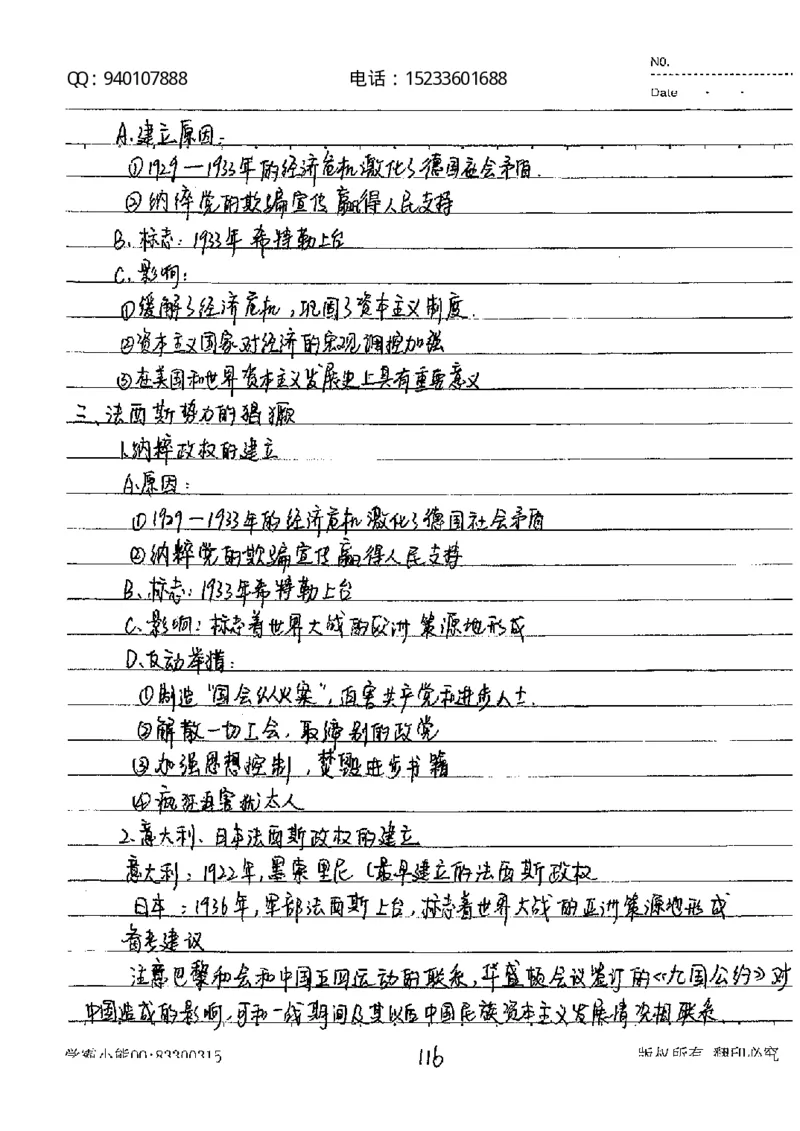 NO.
QQ：940107888 电话：15233601688
Date
A.建立原因：
①1929—1933年的经济危机激化了德国社会矛盾.
②纳粹党的欺骗宣传赢得人民支持
B、标志：1933年希特勒上台
C、影响：
①缓解了经济危机，巩固了资本主义制度.
②资本主义国家对经济的宏观调控加强
③在美国和世界资本主义发展史上具有重要意义
三、法西斯势力的猖獗
1.纳粹政权的建立
A.原因：
①1929—1933年的经济危机激化了德国社会矛盾
②纳粹党的欺骗宣传赢得人民支持
B、标志：1933年希特勒上台
C、影响：标志着世界大战的欧洲策源地形成
D、反动举措：
①制造“国会纵火案”，迫害共产党和进步人士.
②解散一切工会，取缔别的政党
③加强思想控制，焚毁进步书籍
④疯狂迫害犹太人
2、意大利、日本法西斯政权的建立
意大利：1922年，墨索里尼（最早建立的法西斯政权
日本：1936年，军部法西斯上台，标志着世界大战的亚洲策源地形成
备考建议
注意巴黎和会和中国五四运动的联系，华盛顿会议签订的《九国公约》对
中国造成的影响，可和一战期间及其以后中国民族资本主义发展情况相联系.
学霸小熊QQ:83300315 116 版权所有 翻印必究